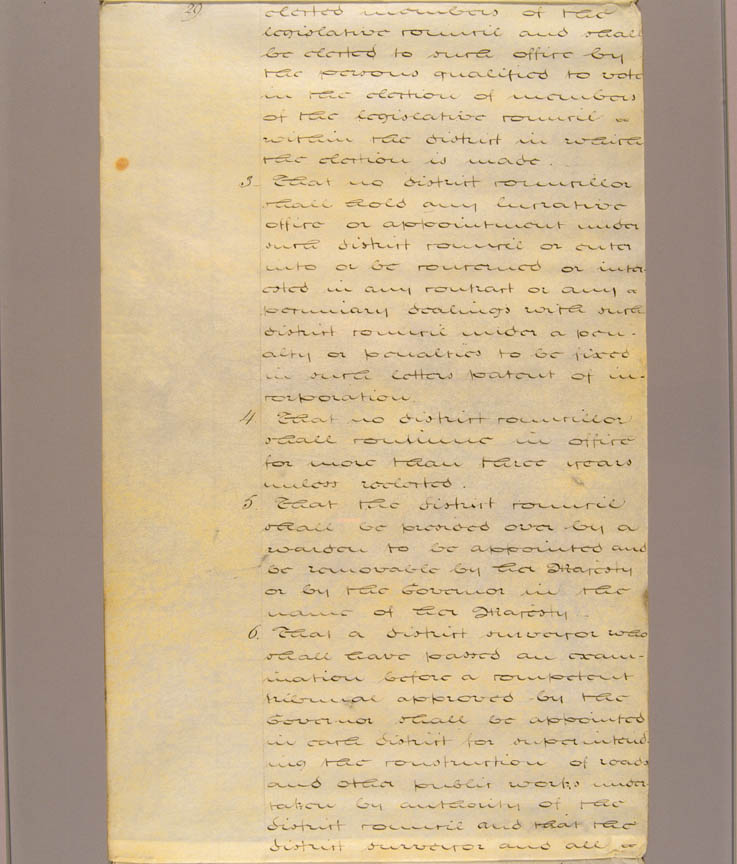 29
elected members of the
legislative council and shall
be elected to such office by
the persons qualified to vote
in the election of members
of the legislative council
within the district in which
the election is made.
3. That no district councillor
shall hold any lucrative
office or appointment under
such district council or enter
into or be concerned or inter-
ested in any contract or any
pecuniary dealings with such
district council under a pen-
alty or penalties to be fixed
in such letters patent of in-
corporation.
4 That no district councillor
shall continue in office
for more than three years
unless reelected.
5 That the district council
shall be presided over by a
warden to be appointed and
be removable by Her Majesty
or by the Governor in the
name of Her Majesty.
6. That a district surveyor who
shall have passed an exam-
ination before a competent
tribunal approved by the
Governor shall be appointed
in each district for superintend-
ing the construction of roads
and other public works under-
taken by authority of the
district council and that the
district surveyor and all